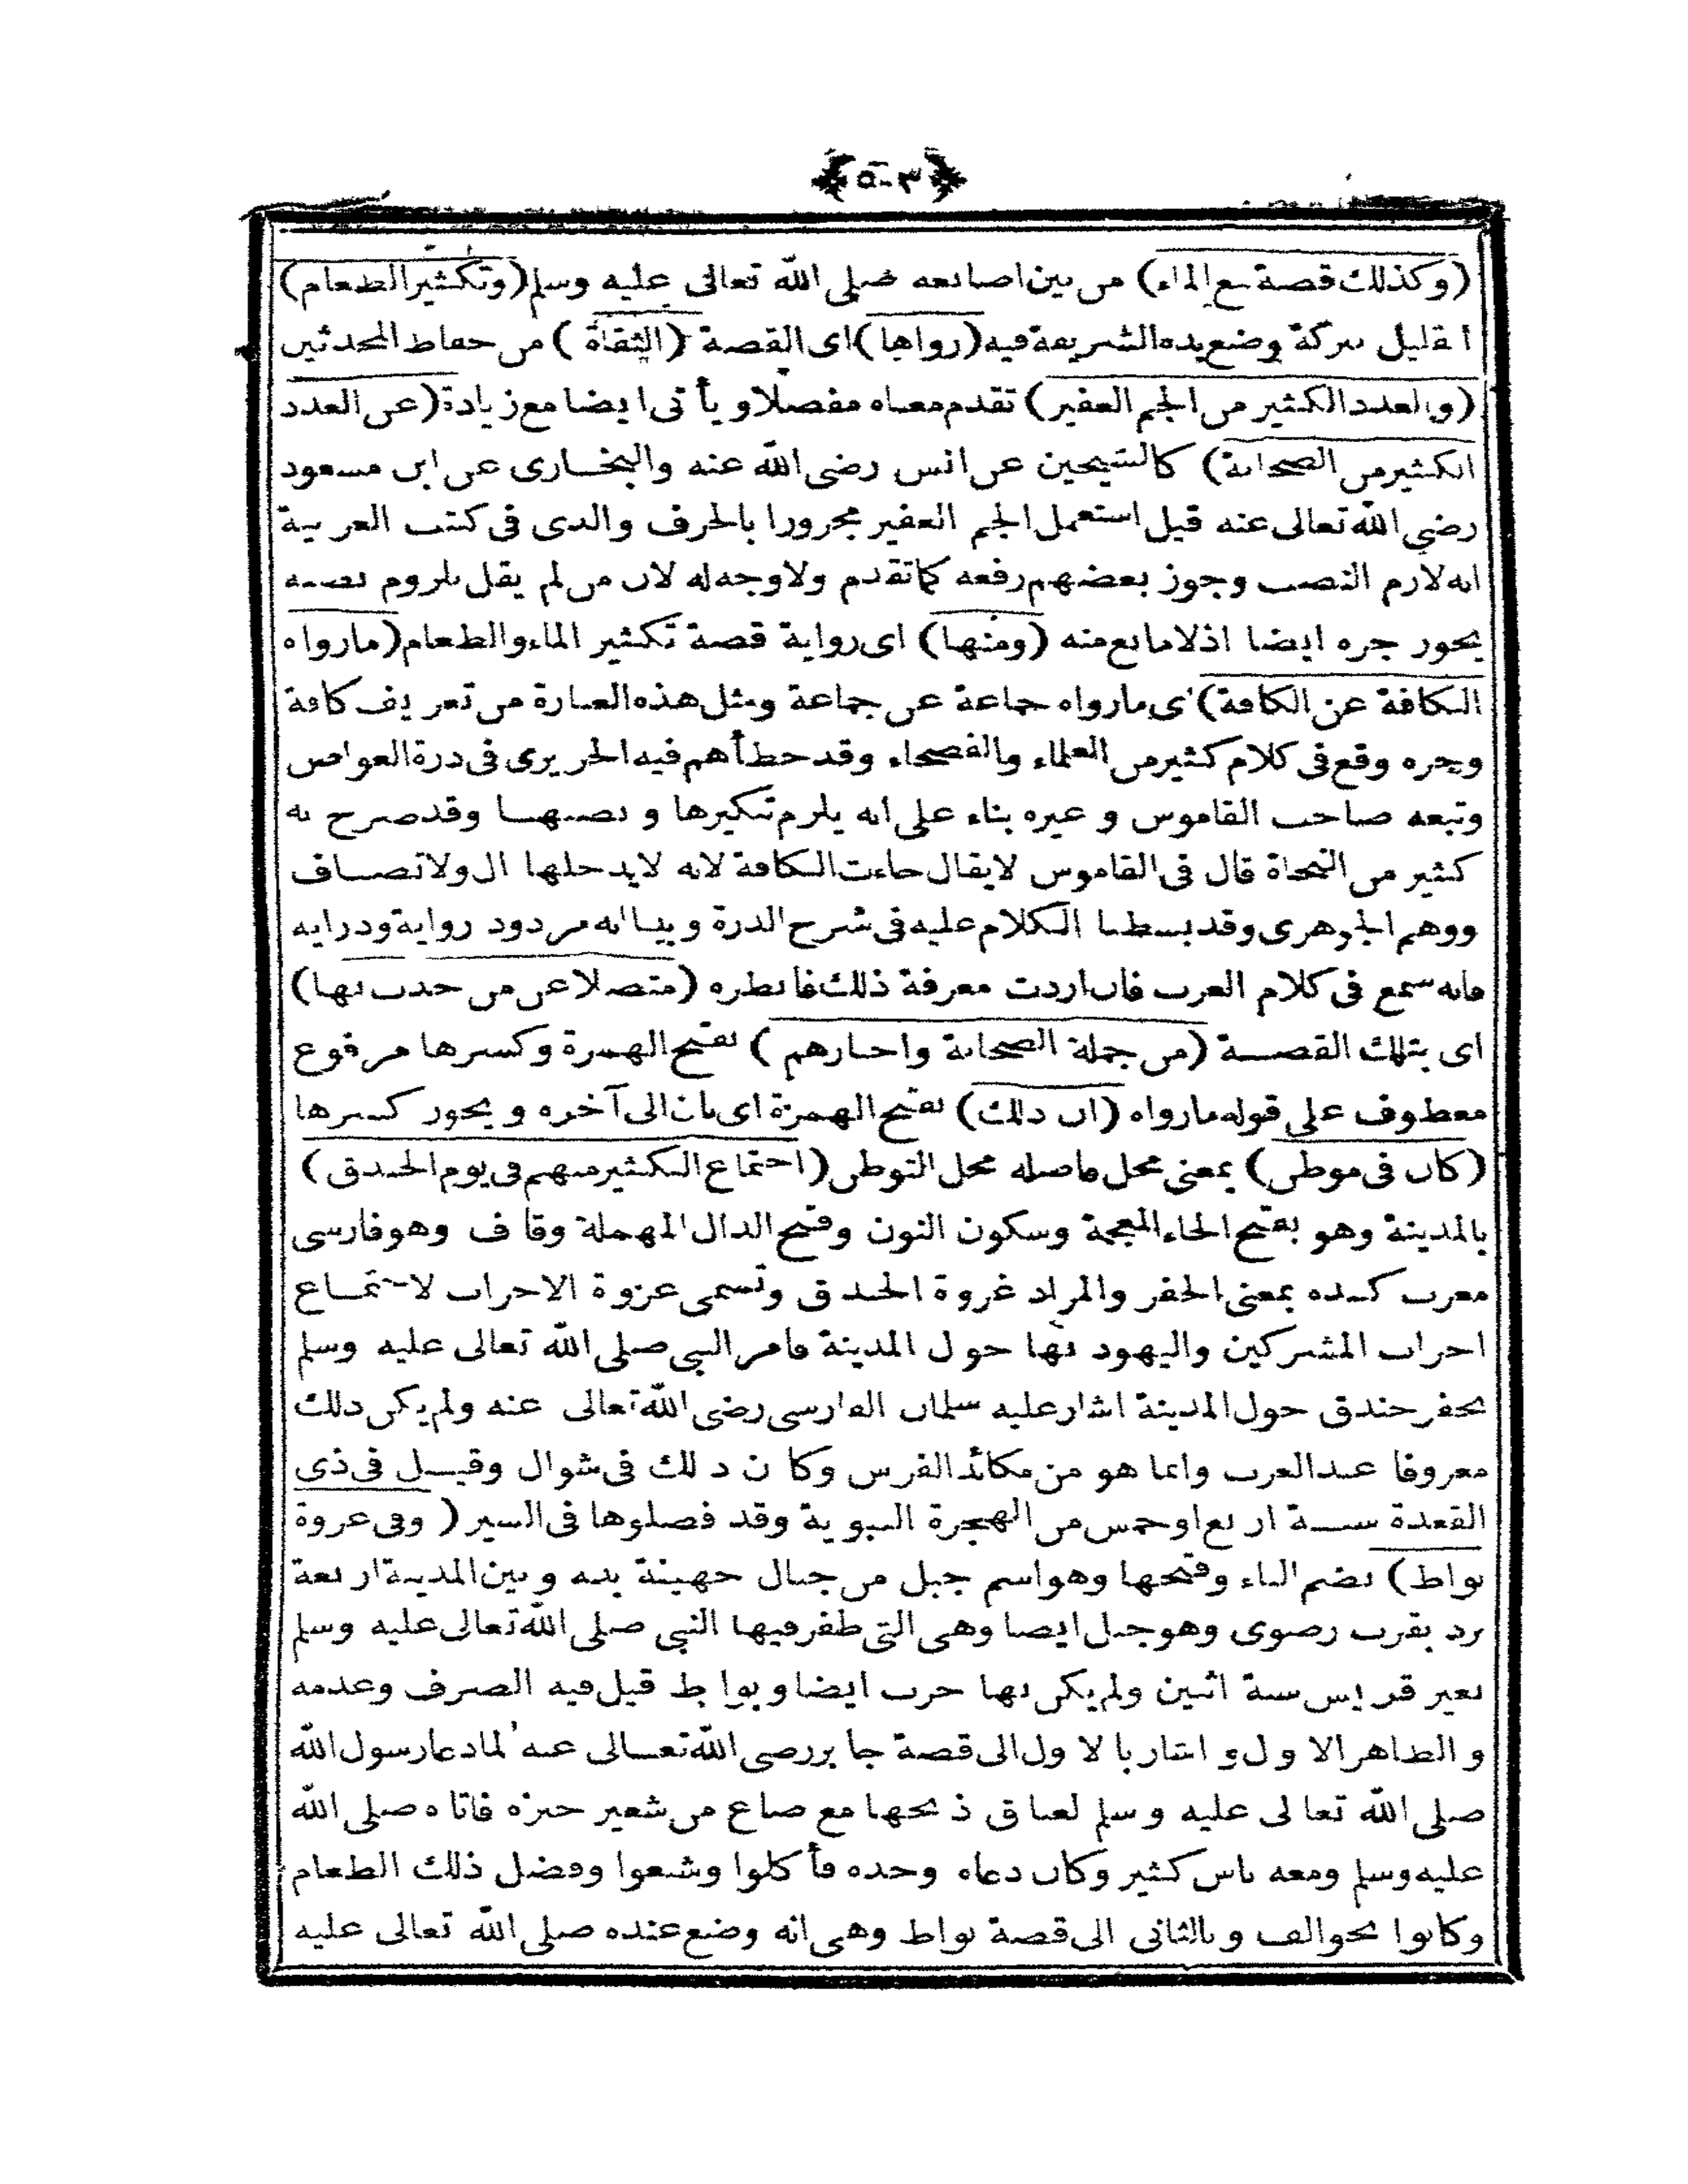 ﴿٥٠٣﴾
(وكذلك قصة نبع الماء) من بين اصابعه صلى الله تعالى عليه وسلم (وتكثير الطعام)
القليل ببركة وضع يده الشريفة فيه (رواها) اى القصة (الثقاة) من حفاظ المحدثين
(والعدد الكثير من الجم الغفير) تقدم معناه مفصلا ويأتى ايضا مع زيادة (عن العدد
الكثير من الصحابة) كالشيخين عن انس رضى الله عنه والبخارى عن ابن مسعود
رضى الله تعالى عنه قيل استعمل الجم الغفير مجرورا بالحرف والذى فى كتب العربية
انه لازم النصب وجوز بعضهم رفعه كما تقدم ولا وجه له لان من لم يقل بلزوم نصبه
يجوز جره ايضا اذ لا مانع منه (ومنها) اى رواية قصة تكثير الماء والطعام (ما رواه
الكافة عن الكافة) اى ما رواه جماعة عن جماعة ومثل هذه العبارة من تعريف كافة
وجره وقع فى كلام كثير من العلماء والفصحاء وقد خطأهم فيه الحريرى فى درة الغواص
وتبعه صاحب القاموس وغيره بناء على انه يلزم تنكيرها ونصبها وقد صرح به
كثير من النحاة قال فى القاموس لا يقال جاءت الكافة لانه لا يدخلها ال ولا تضاف
ووهم الجوهرى وقد بسطنا الكلام عليه فى شرح الدرة وبينا انه مردود رواية ودراية
فانه سمع فى كلام العرب فان اردت معرفة ذلك فانظره (متصلا عن من حدث بها)
اى بتلك القصة (من جملة الصحابة واخبارهم) بفتح الهمزة وكسرها مرفوع
معطوف على قوله ما رواه (ان ذلك) بفتح الهمزة اى بان الى آخره ويجوز كسرها
(كان فى موطن) بمعنى محل واصله محل التوطن (اجتماع الكثير منهم فى يوم الخندق)
بالمدينة وهو بفتح الخاء المعجمة وسكون النون وفتح الدال المهملة وقاف وهو فارسى
معرب كنده بمعنى الحفر والمراد غزوة الخندق وتسمى غزوة الاحزاب لاجتماع
احزاب المشركين واليهود بها حول المدينة فامر النبى صلى الله تعالى عليه وسلم
بحفر خندق حول المدينة اشار عليه سلمان الفارسى رضى الله تعالى عنه ولم يكن ذلك
معروفا عند العرب وانما هو من مكائد الفرس وكان ذلك فى شوال وقيل فى ذى
القعدة سنة اربع او خمس من الهجرة النبوية وقد فصلوها فى السير (وفى غزوة
بواط) بضم الباء وفتحها وهو اسم جبل من جبال جهينة بينه وبين المدينة اربعة
برد بقرب رضوى وهو جبل ايضا وهى التى ظفر فيها النبى صلى الله تعالى عليه وسلم
بعير قريش سنة اثنين ولم يكن بها حرب ايضا وبواط قيل فيه الصرف وعدمه
والظاهر الاول واشار بالاول الى قصة جابر رضى الله تعالى عنه لما دعا رسول الله
صلى الله تعالى عليه وسلم لعناق ذبحها مع صاع من شعير خبزه فاتاه صلى الله
عليه وسلم ومعه ناس كثير وكان دعاه وحده فأكلوا وشبعوا وفضل ذلك الطعام
وكانوا بحوالف وبالثانى الى قصة بواط وهى انه وضع عنده صلى الله تعالى عليه